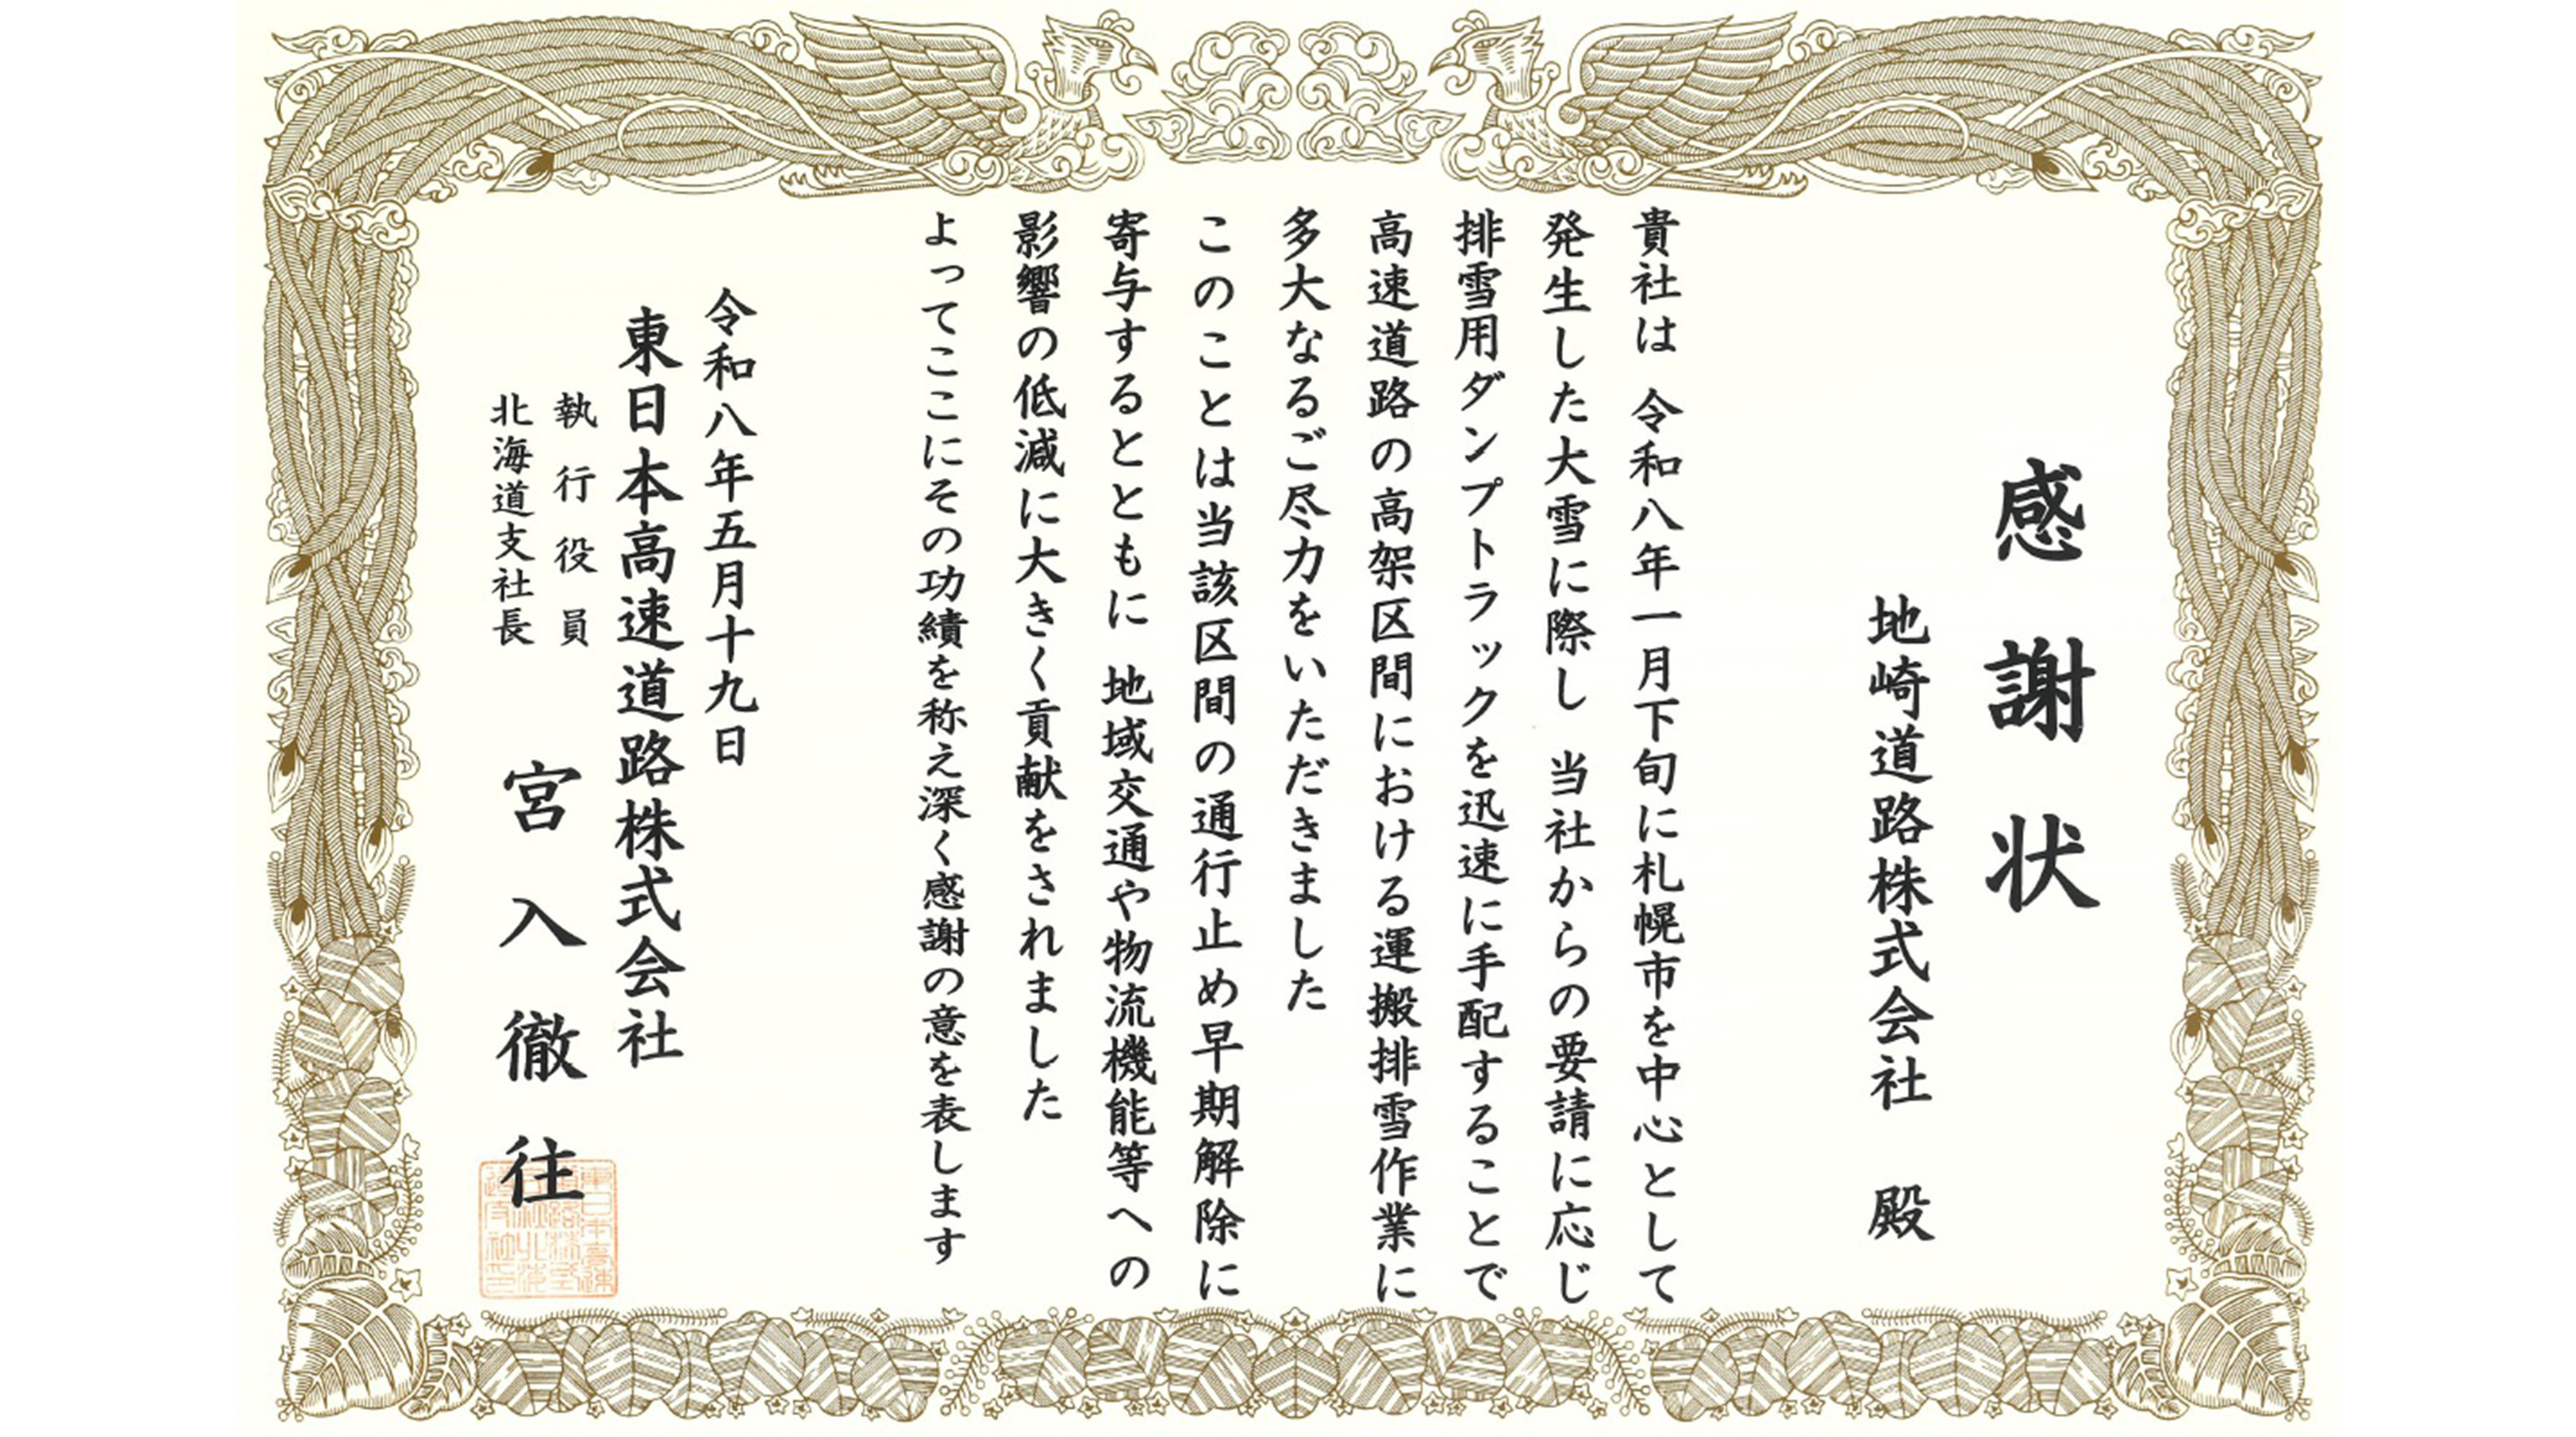 感謝状
地崎道路株式会社 殿
貴社は 令和八年一月下旬に札幌市を中心として
発生した大雪に際し 当社からの要請に応じ
排雪用ダンプトラックを迅速に手配することで
高速道路の高架区間における運搬排雪作業に
多大なるご尽力をいただきました
このことは当該区間の通行止め早期解除に
寄与するとともに 地域交通や物流機能等への
影響の低減に大きく貢献をされました
よってここにその功績を称え深く感謝の意を表します
令和八年五月十九日
東日本高速道路株式会社
執行役員
北海道支社長
宮入徹往